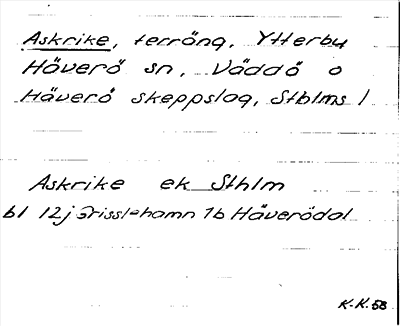 Askrike, terräng, Ytterby
Häverö sn, Väddö o
Häverö skeppslag, Sthlms l
Askrike ek Sthlm
bl 12j Grisslehamn 1b Häverödal
K-K. 58